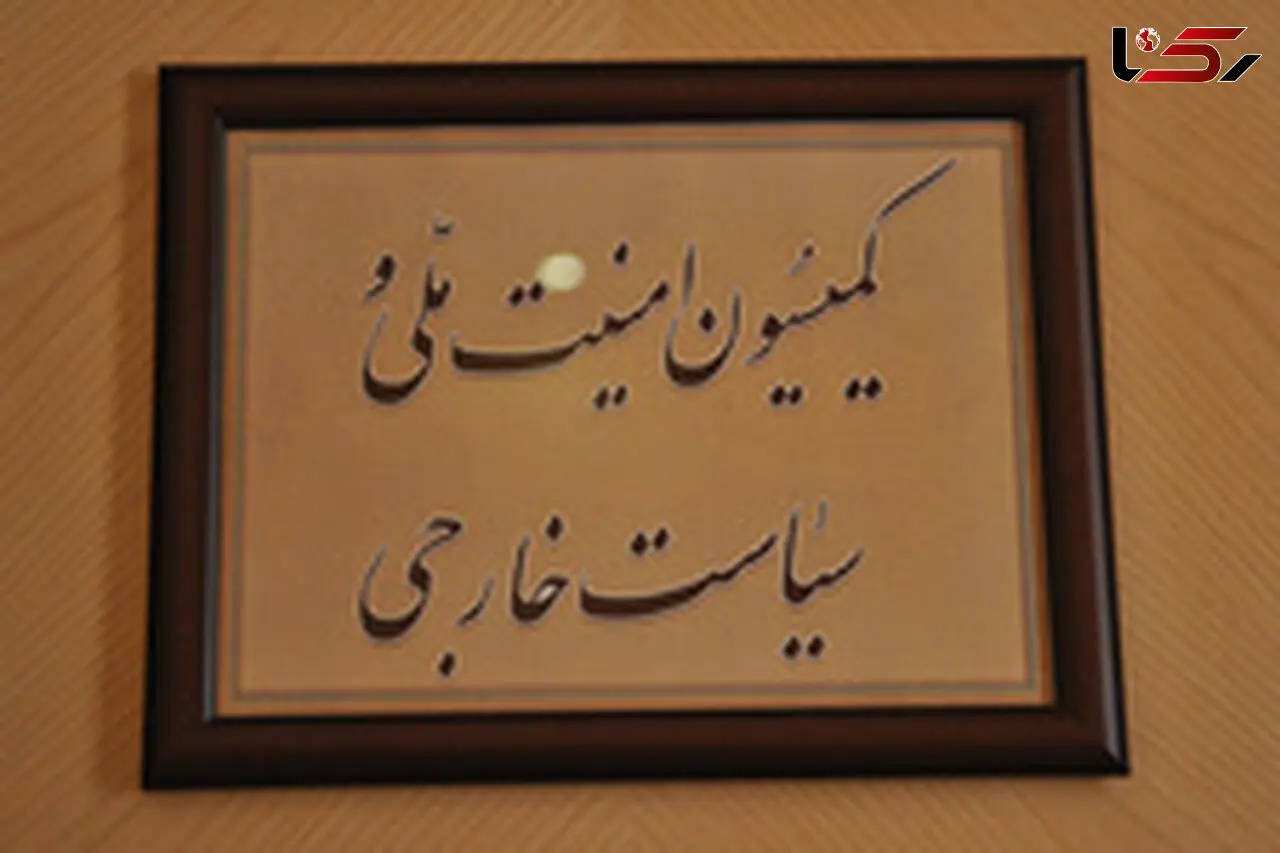 رکنا
کمیسیون امنیت ملّی و
سیاست خارجی